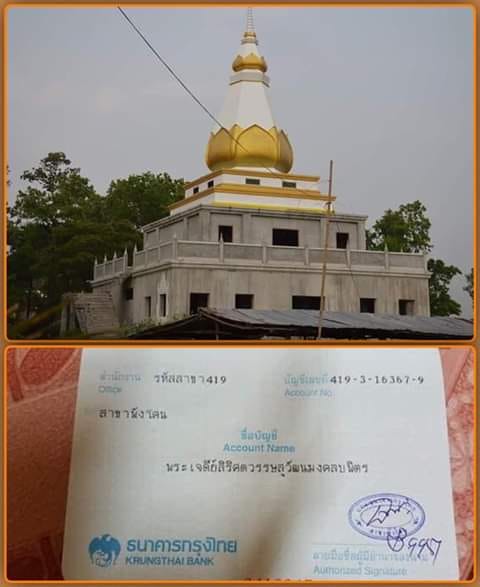 สำนักงาน รหัสสาขา419 บัญชีเลขที่ 419-3-16367-9
Office Account No.
สาขาบึงโขน
ชื่อบัญชี
Account Name
พระเจดีย์สิริคตวรรษสุวัฒนมงคลบพิตร
ธนาคารกรุงไทย
KRUNGTHAI BANK
ลายมือชื่อผู้มีอำนาจลงนาม
Authorized Signature